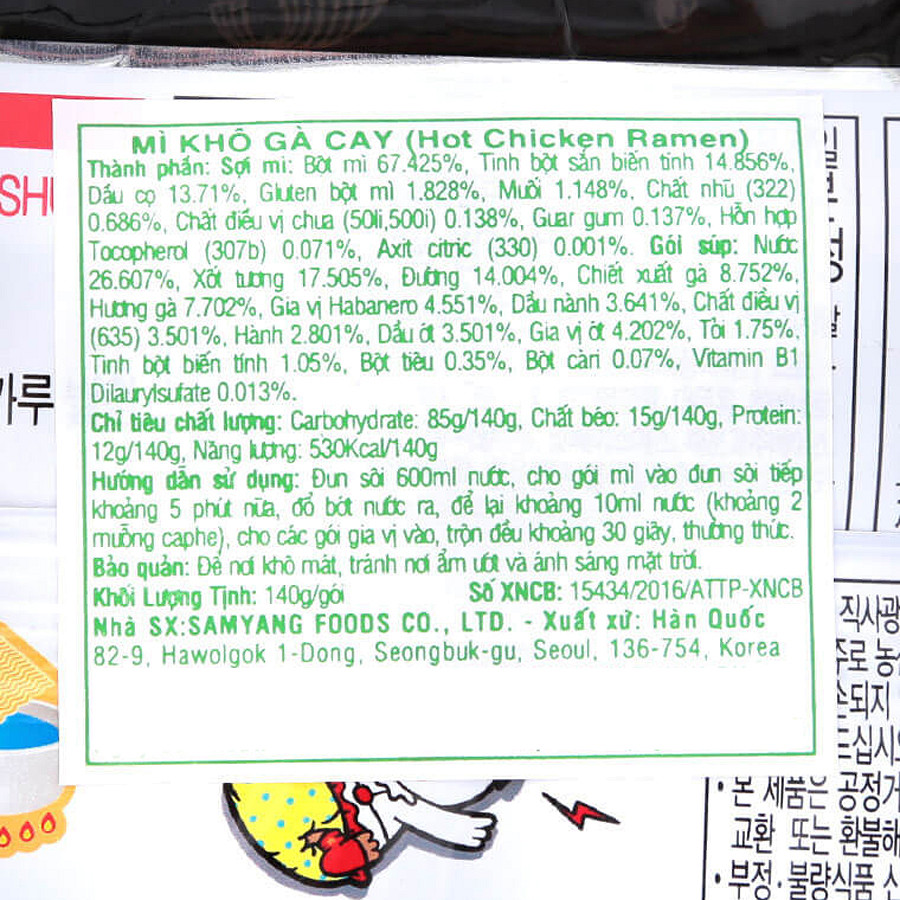 MÌ KHÔ GÀ CAY (Hot Chicken Ramen)
Thành phần: Sợi mì: Bột mì 67.425%, Tinh bột sắn biến tính 14.856%,
Dầu cọ 13.71%, Gluten bột mì 1.828%, Muối 1.148%, Chất nhũ (322)
0.686%, Chất điều vị chua (50li,500i) 0.138%, Guar gum 0.137%, Hỗn hợp
Tocopherol (307b) 0.071%, Axit citric (330) 0.001%. Gói súp: Nước
26.607%, Xốt tương 17.505%, Đường 14.004%, Chiết xuất gà 8.752%,
Hương gà 7.702%, Gia vị Habanero 4.551%, Dầu nành 3.641%, Chất điều vị
(635) 3.501%, Hành 2.801%, Dầu ớt 3.501%, Gia vị ớt 4.202%, Tỏi 1.75%,
Tinh bột biến tính 1.05%, Bột tiêu 0.35%, Bột càri 0.07%, Vitamin B1
Dilaurylsufate 0.013%.
Chỉ tiêu chất lượng: Carbohydrate: 85g/140g, Chất béo: 15g/140g, Protein:
12g/140g, Năng lượng: 530Kcal/140g
Hướng dẫn sử dụng: Đun sôi 600ml nước, cho gói mì vào đun sôi tiếp
khoảng 5 phút nữa, đổ bớt nước ra, để lại khoảng 10ml nước (khoảng 2
muỗng caphe), cho các gói gia vị vào, trộn đều khoảng 30 giây, thưởng thức.
Bảo quản: Để nơi khô mát, tránh nơi ẩm ướt và ánh sáng mặt trời.
Khối Lượng Tịnh: 140g/gói Số XNCB: 15434/2016/ATTP-XNCB
Nhà SX:SAMYANG FOODS CO., LTD. - Xuất xứ: Hàn Quốc
82-9, Hawolgok 1-Dong, Seongbuk-gu, Seoul, 136-754, Korea
가루
직사광
주로 농
되지
십시오
• 본 제품은 공정거
교환 또는 환불해
• 부정·불량식품 신